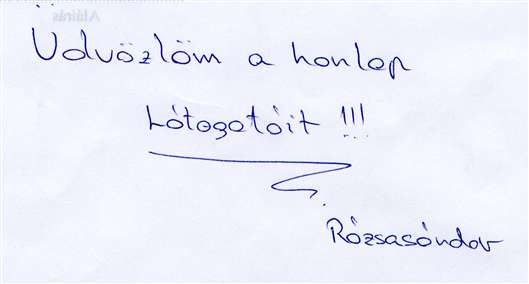 Üdvözlöm a honlap
Látogatóit !!!
Rózsasándor
Aláírás